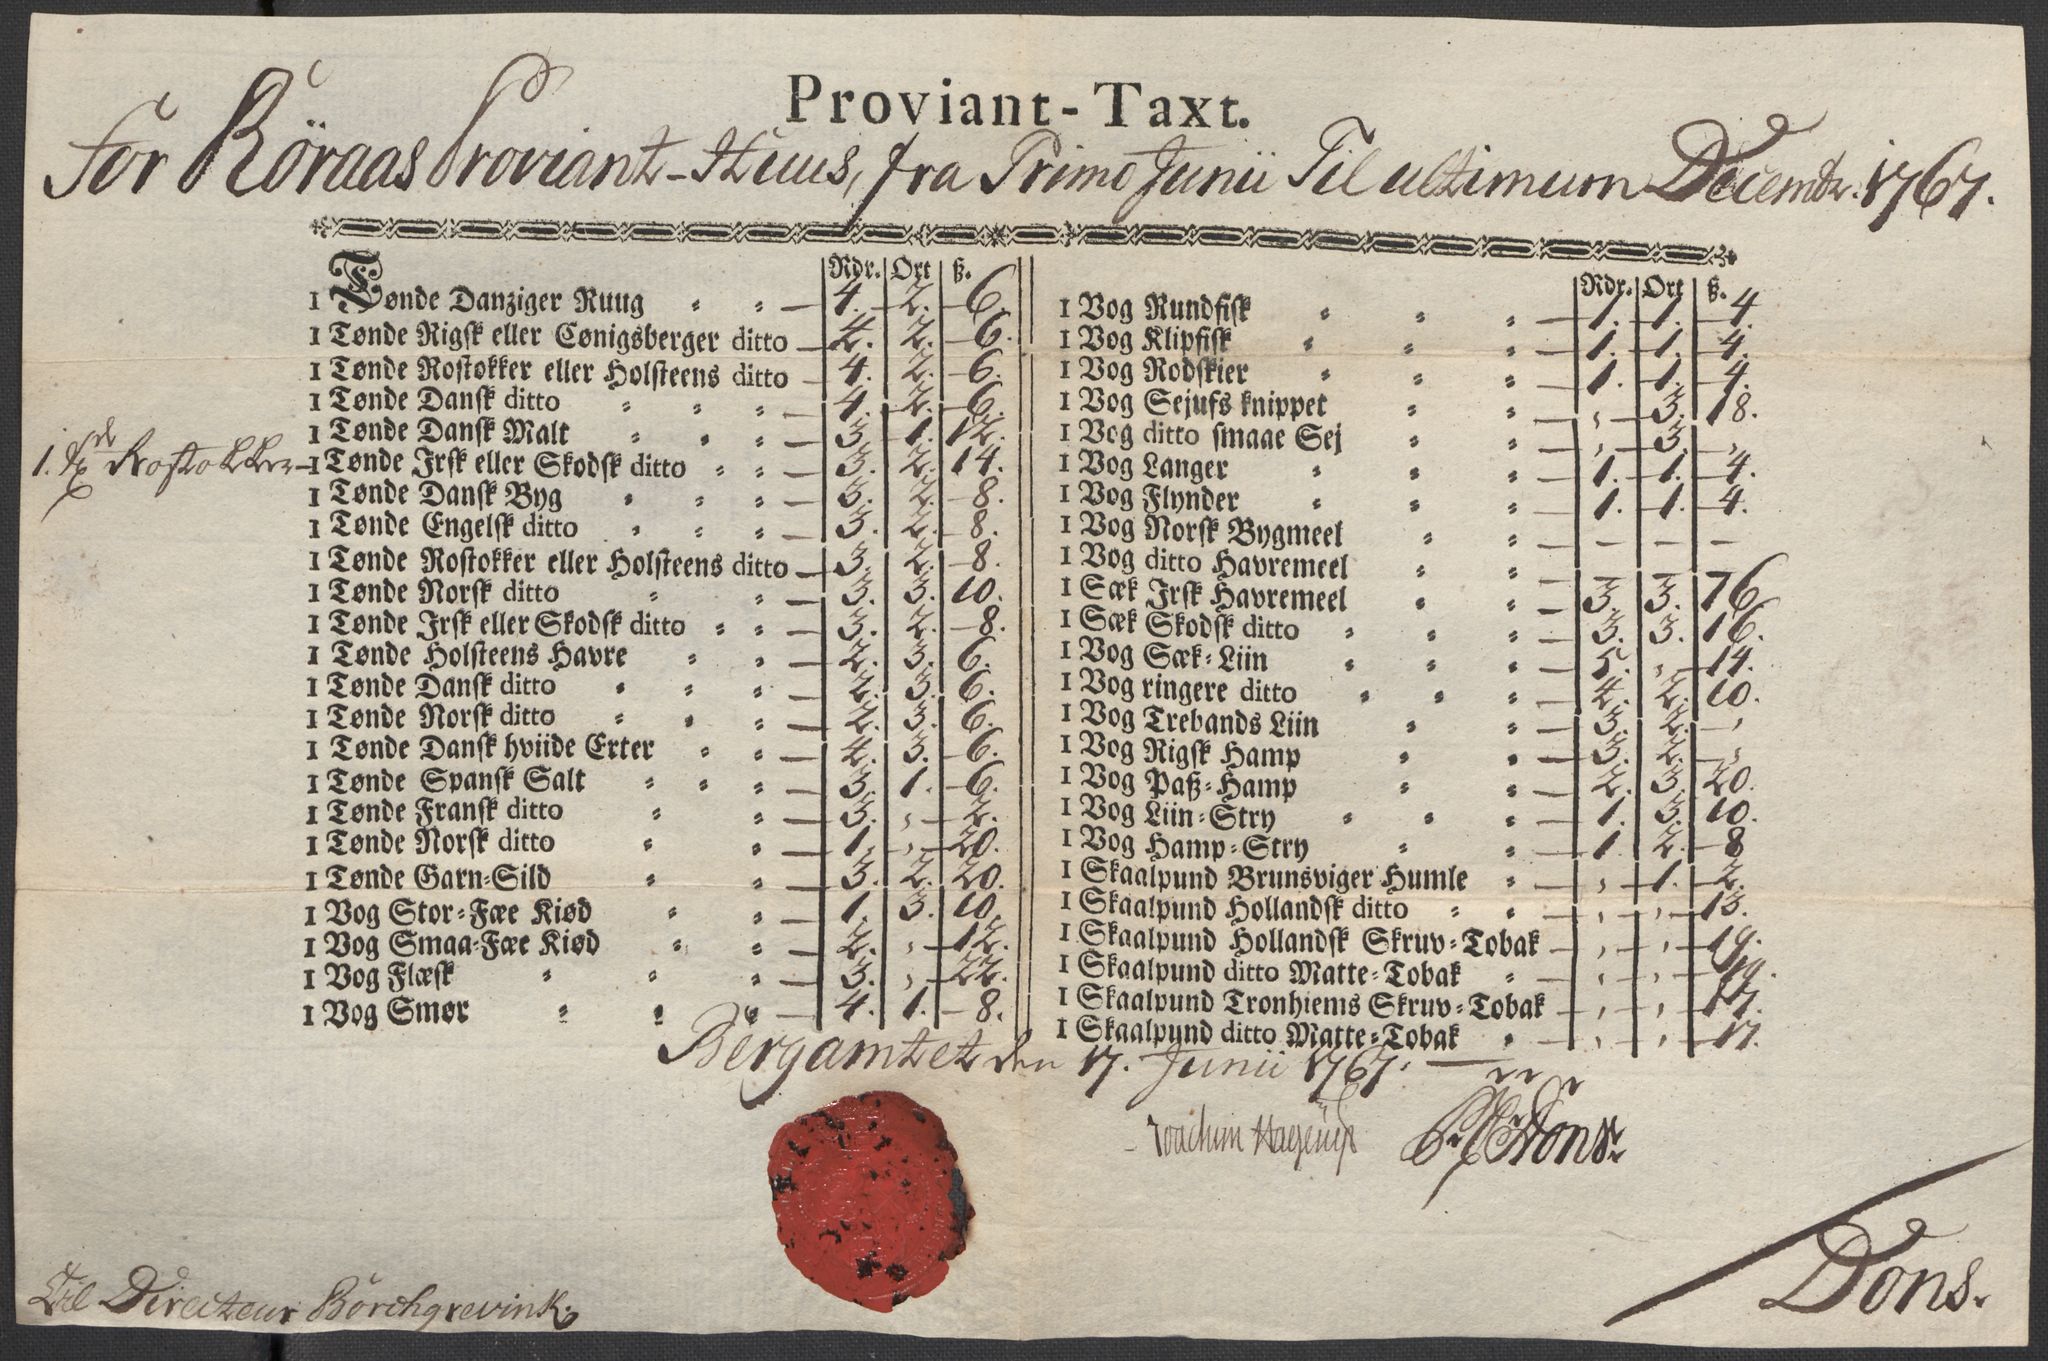 Proviant-Taxt.
For Röraas Proviant-Huus, fra Primo Junii Til ultimum Decembr. 1767.
Rdr. Ort ß.
1 Tønde Danziger Ruug 4. 2. 6
1 Tønde Rigsk eller Cønigsberger ditto 4. 2. 6.
1 Tønde Rostokker eller Holsteens ditto 4. 2. 6.
1 Tønde Dansk ditto 4. 2. 6.
1 Tønde Dansk Malt 3. 1. 12.
1. Td Rostokker
1 Tønde Irsk eller Skodsk ditto 3. 2. 14.
1 Tønde Dansk Byg 3. 2. 8.
1 Tønde Engelsk ditto 3. 2. 8.
1 Tønde Rostokker eller Holsteens ditto 3. 2. 8.
1 Tønde Norsk ditto 3. 3. 10.
1 Tønde Irsk eller Skodsk ditto 3. 2. 8.
1 Tønde Holsteens Havre 2. 3. 6.
1 Tønde Dansk ditto 2. 3. 6.
1 Tønde Norsk ditto 2. 3. 6.
1 Tønde Dansk hviide Erter 4. 3. 6.
1 Tønde Spansk Salt 3. 1. 6.
1 Tønde Fransk ditto 3. , 2.
1 Tønde Norsk ditto 1. , 20.
1 Tønde Garn-Sild 3. 2. 20.
1 Vog Stor-Fæe Kiød 1. 3. 10.
1 Vog Smaa-Fæe Kiød 2. , 12.
1 Vog Flæsk 3. , 22.
1 Vog Smør 4. 1. 8.
Rdr. Ort ß.
1 Vog Rundfisk 1. 1. 4
1 Vog Klipfisk 1. 1. 4.
1 Vog Rodskier 1. 1. 4.
1 Vog Sejufs knippet , 3. 18.
1 Vog ditto smaae Sej , 3. ,
1 Vog Langer 1. 1. 4.
1 Vog Flynder 1. 1. 4.
1 Vog Norsk Bygmeel — — —
1 Vog ditto Havremeel — — —
1 Sæk Irsk Havremeel 3. 3. 16
1 Sæk Skodsk ditto 3. 3. 16.
1 Vog Sæk-Liin 5. , 14.
1 Vog ringere ditto 4. 2. 10.
1 Vog Trebands Liin 3. 2. ,
1 Vog Rigsk Hamp 3. 2. ,
1 Vog Paß-Hamp 2. 3. 20.
1 Vog Liin-Stry 1. 3. 10.
1 Vog Hamp-Stry 1. 2. 8
1 Skaalpund Brunsviger Humle , 1. 2.
1 Skaalpund Hollandsk ditto , , 13.
1 Skaalpund Hollandsk Skruv-Tobak , , 19.
1 Skaalpund ditto Matte-Tobak , , 19.
1 Skaalpund Tronhiems Skruv-Tobak , , 17.
1 Skaalpund ditto Matte-Tobak , , 17.
Bergamtet den 17. Junii 1767.
Joachim Hagerup Dons.
Dons.
Til Directeur Borchgrevink.